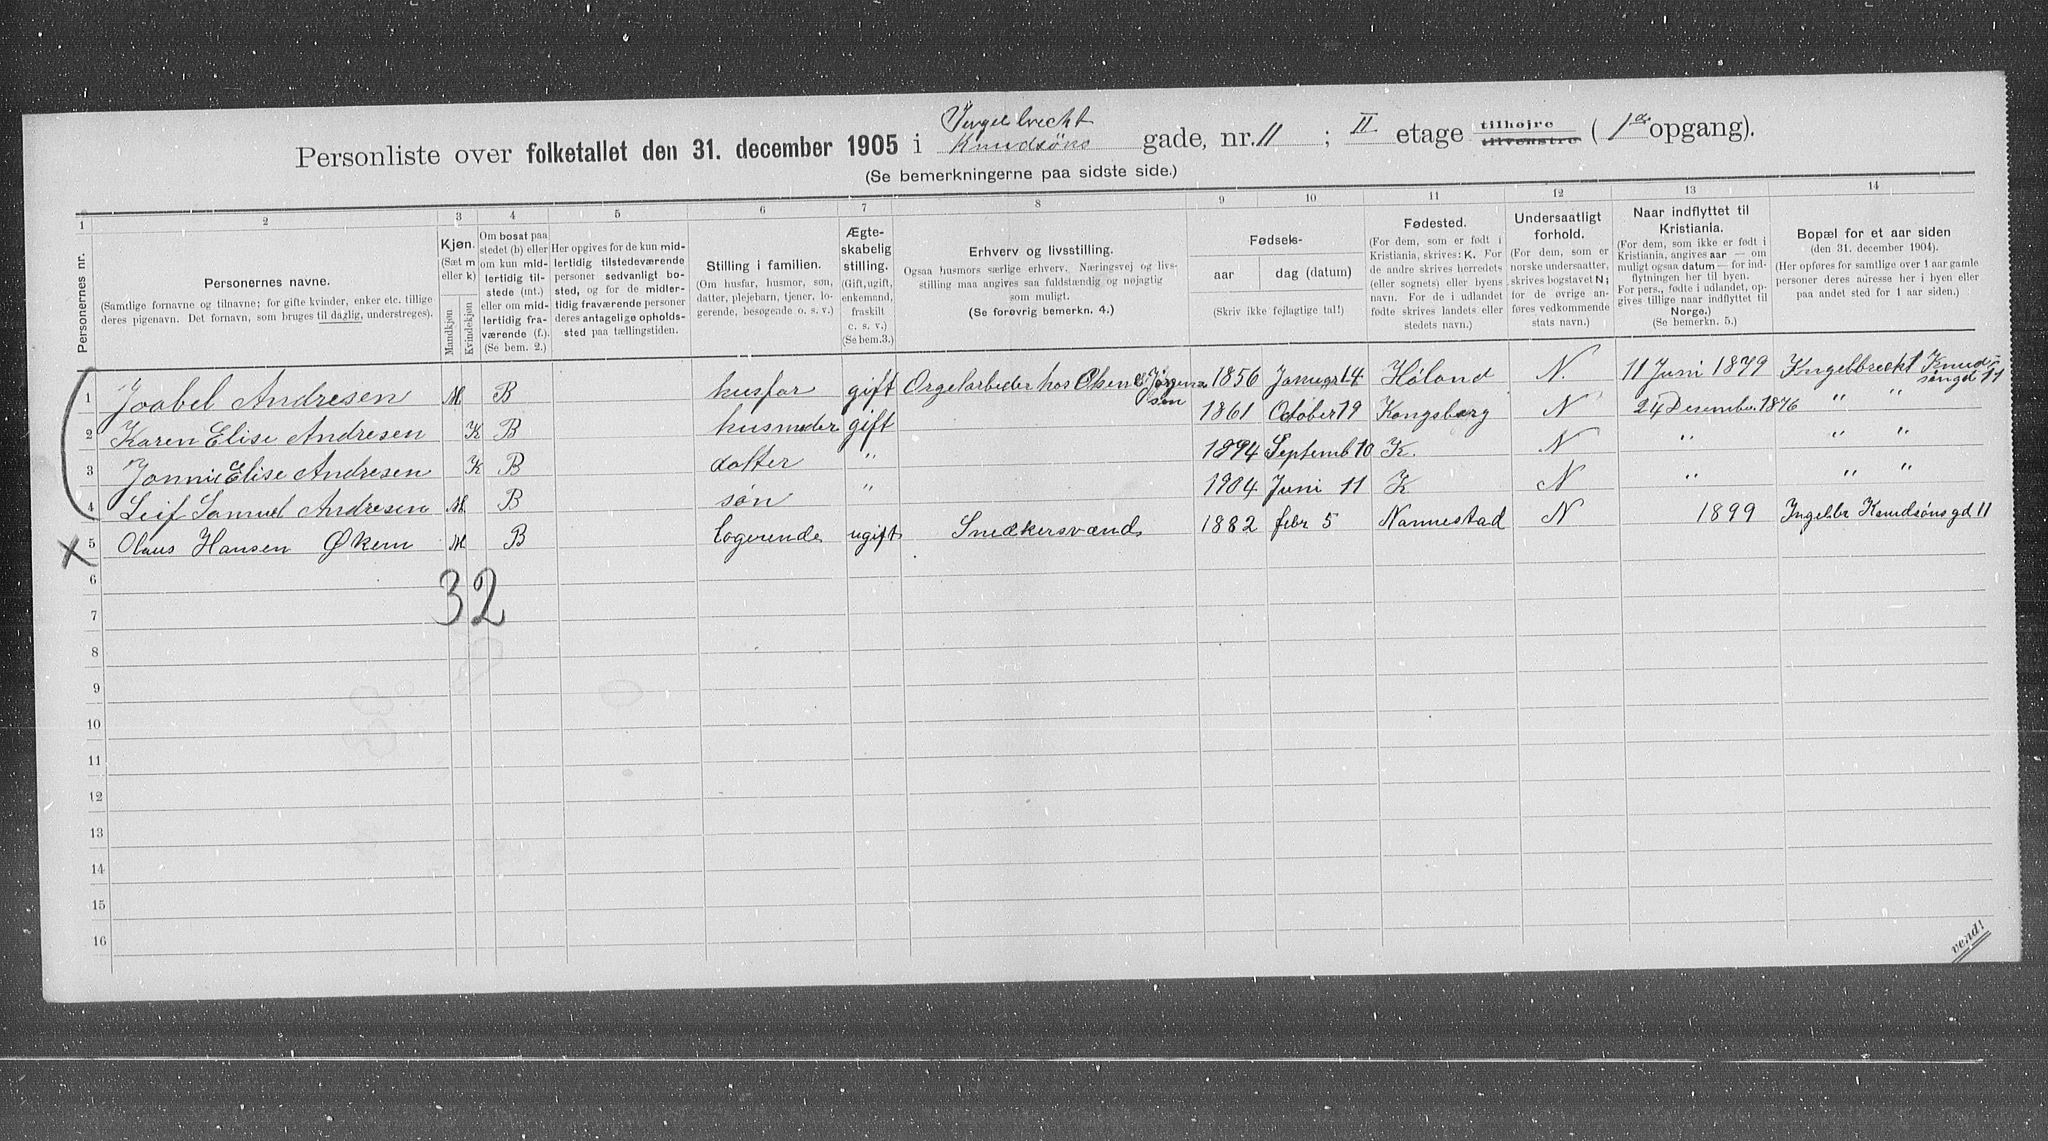 Personliste over folketallet den 31. december 1905 i Ingelbrecht Knudsøns gade, nr. 11 ; II etage tilhøjre tilvenstre ( 1ste opgang).
(Se bemerkningerne paa sidste side.)
1 2 3 4 5 6 7 8 9 10 11 12 13 14
Personernes nr.
Personernes navne.
(Samtlige fornavne og tilnavne; for gifte kvinder, enker etc. tillige
deres pigenavn. Det fornavn, som bruges til daglig, understreges).
Kjøn.
(Sæt m
eller k)
Mandkjøn
Kvindekjøn
Om bosat paa
stedet (b) eller
om kun mid-
lertidig til-
stede (mt.)
eller om mid-
lertidig fra-
værende (f.).
(Se bem. 2.)
Her opgives for de kun mid-
lertidig tilstedeværende
personer sedvanligt bo-
sted, og for de midler-
tidig fraværende personer
deres antagelige opholds-
sted paa tællingstiden.
Stilling i familien.
(Om husfar, husmor, søn,
datter, plejebarn, tjener, lo-
gerende, besøgende o. s. v.)
Ægte-
skabelig
stilling.
(Gift, ugift,
enkemand,
fraskilt
c. s. v.)
(Se bem. 3.)
Erhverv og livsstilling.
Ogsaa husmors særlige erhverv. Næringsvej og livs-
stilling maa angives saa fuldstændig og nøjagtig
som muligt.
(Se forøvrig bemerkn. 4.)
Fødsels-
aar dag (datum)
(Skriv ikke fejlagtige tal!)
Fødested.
(For dem, som er født i
Kristiania, skrives: K. For
de andre skrives herredets
(eller sognets) eller byens
navn. For de i udlandet
fødte skrives landets eller
stedets navn.)
Undersaatligt
forhold.
(For dem, som er
norske undersaatter,
skrives bogstavet N;
for de øvrige an-
føres vedkommende
stats navn.)
Naar indflyttet til
Kristiania.
(For dem, som ikke er født i
Kristiania, angives aar — om
muligt ogsaa datum — for ind-
flytningen her til byen.
For pers., fødte i udlandet, op-
gives tillige naar indflyttet til
Norge.)
(Se bemerkn. 5.)
Bopæl for et aar siden
(den 31. december 1904).
(Her opføres for samtlige over 1 aar gamle
personer deres adresse her i byen eller
paa andet sted for 1 aar siden.)
1 Joabel Andresen M B husfar gift Orgelarbeder hos Olsen & Jørgensen 1856 Januar 14 Høland N. 11 Juni 1879 Engelbrecht Knudsøngd 11
2 Karen Elise Andresen K B husmoder gift 1861 October 19 Kongsberg N 24 Desember 1876 " "
3 Jonni Elise Andresen K B datter " 1894 Septemb 10 K. N " " "
4 Leif Samuel Andresen M B søn " 1904 Juni 11 K N " " "
5 Olaus Hansen Økern M B logerende ugift Snedkersvend 1882 febr 5 Nannestad N 1899 Ingelbr Knudsøns gd 11
6
32
7
8
9
10
11
12
13
14
15
16
vend!